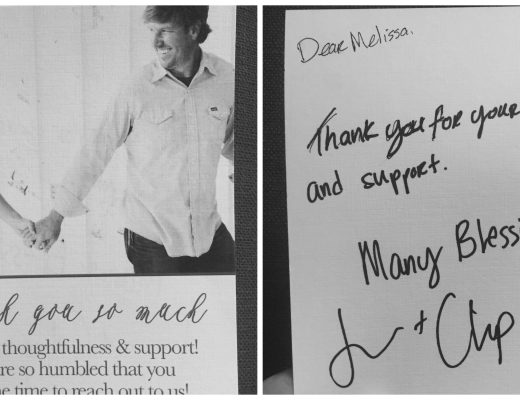 k you so much
thoughtfulness & support!
re so humbled that you
e time to reach out to us!
Dear Melissa.
Thank you for your
and support.
Many Blessi
J + Chip